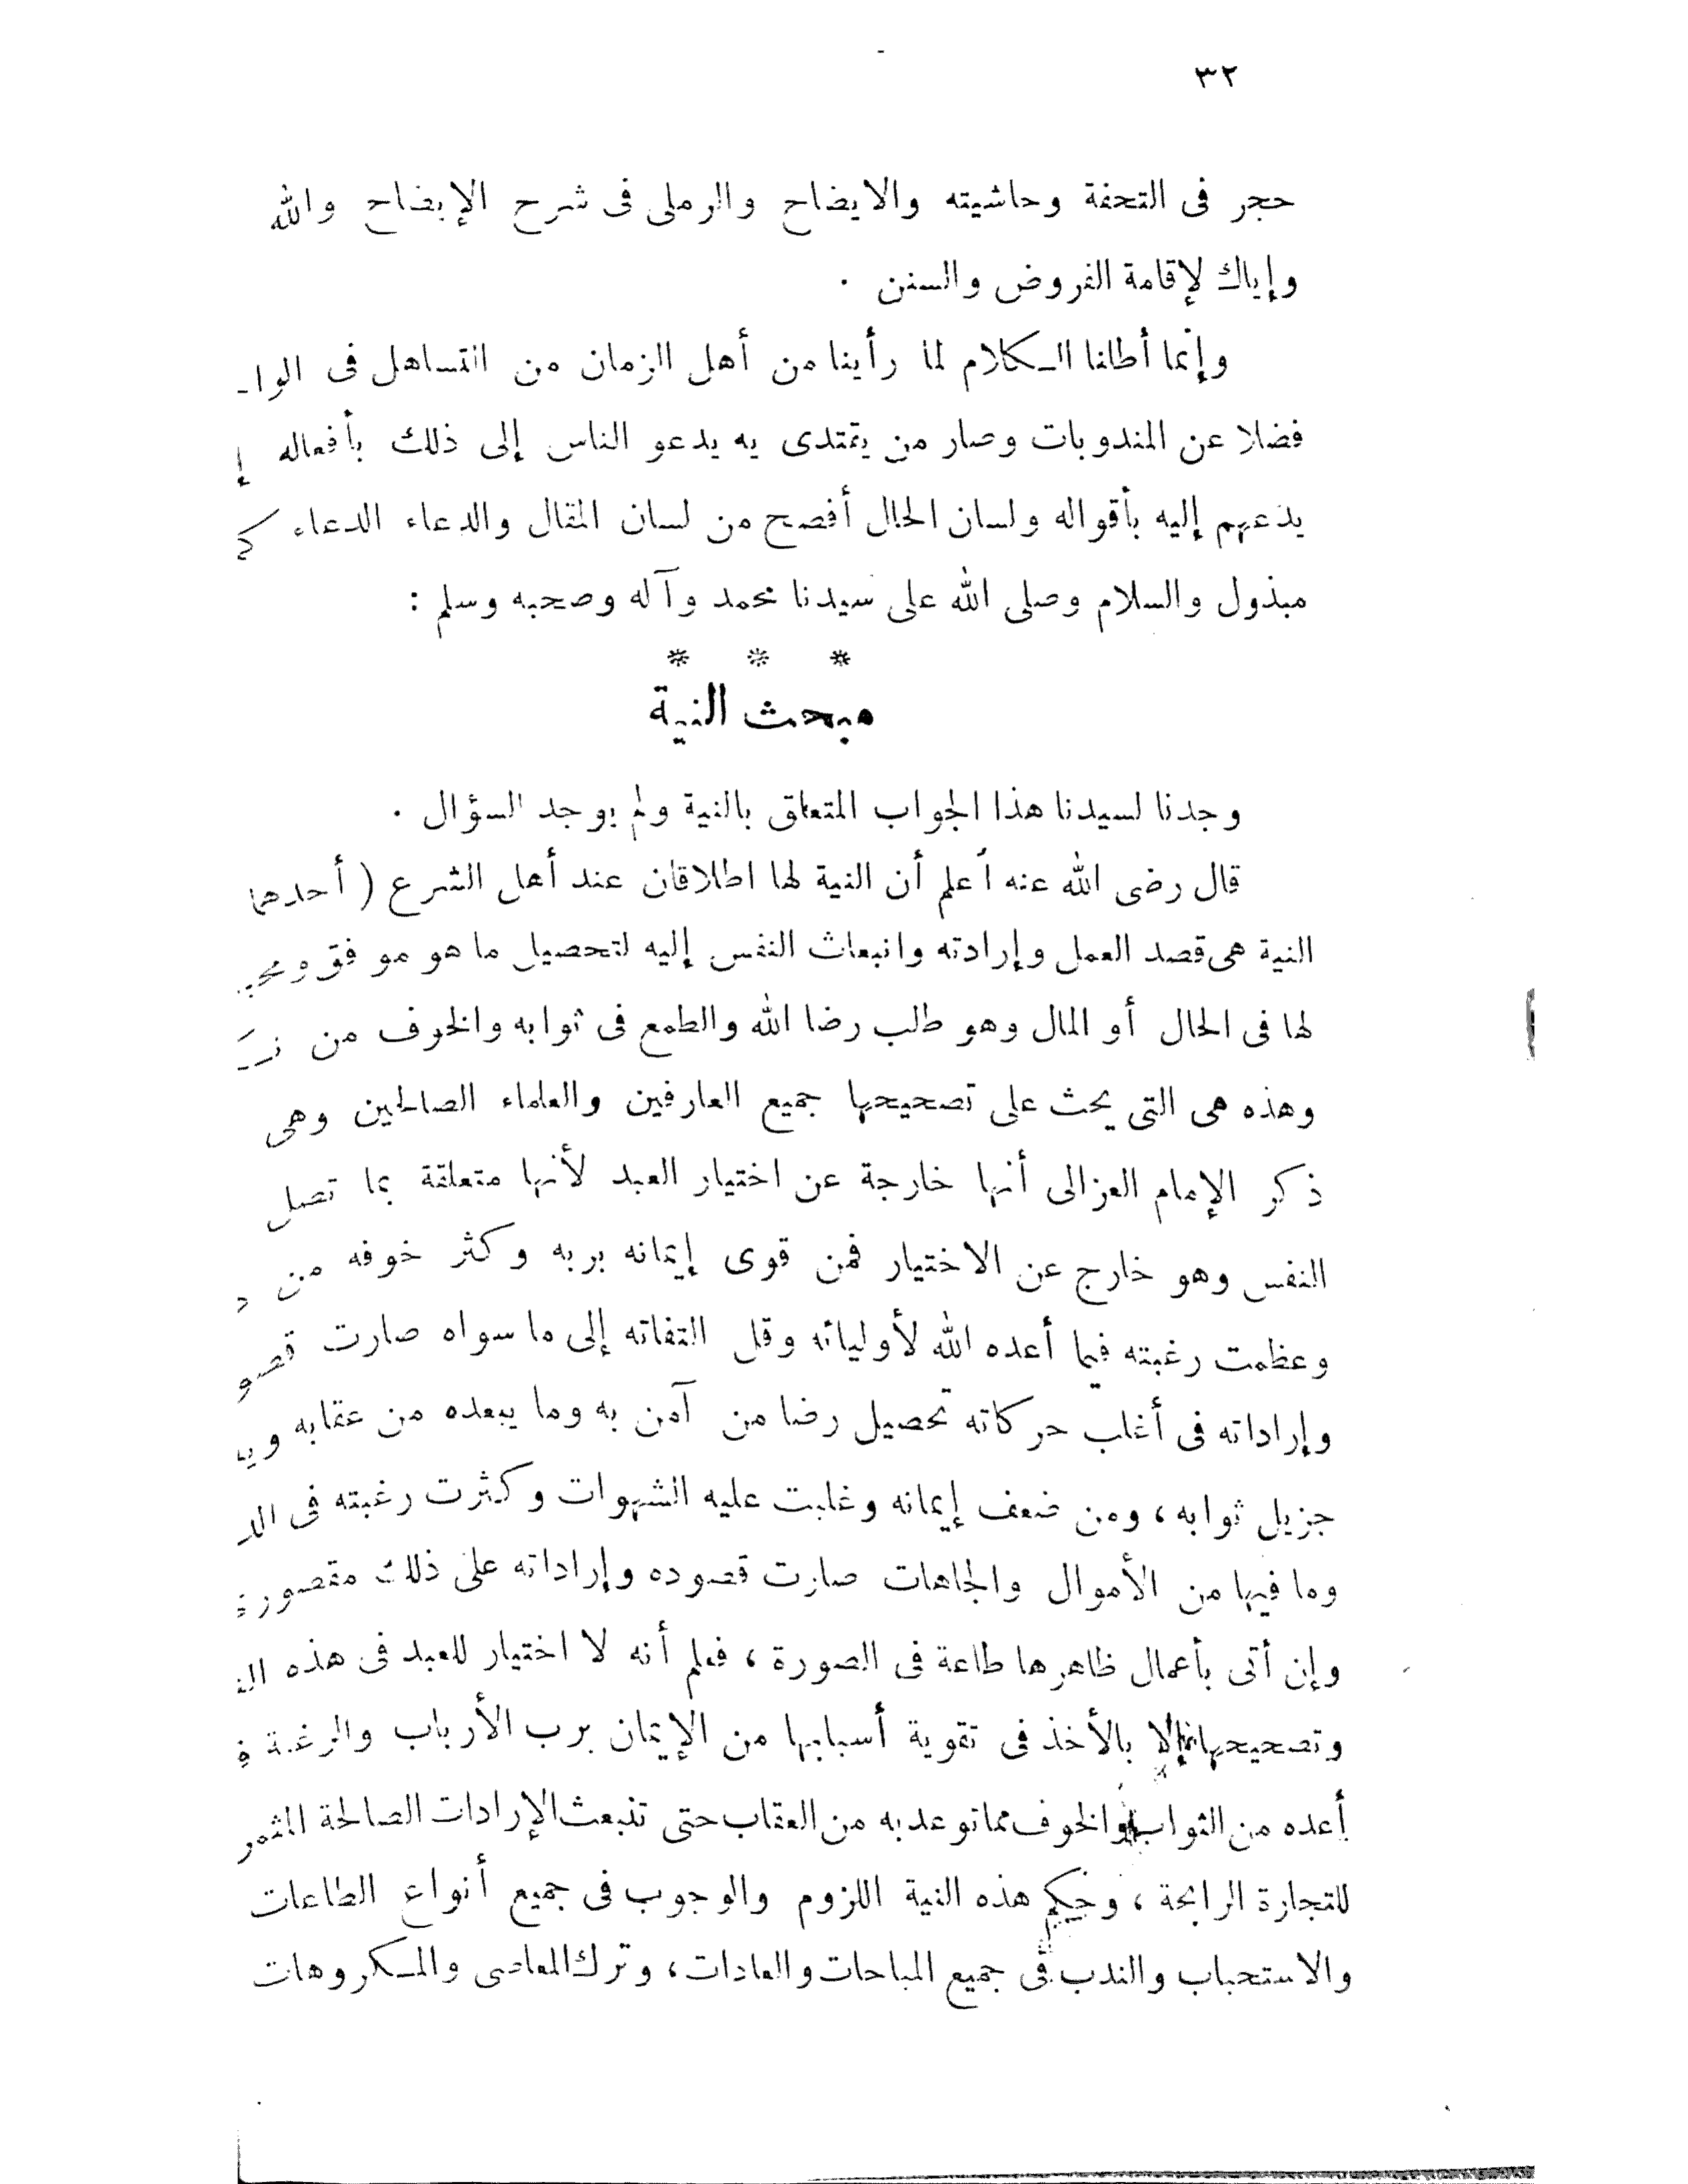 ٣٢
حجر فى التحفة وحاشيته والايضاح والرملى فى شرح الإيضاح والله
وإياك لإقامة الفروض والسنن .
وإنما أطلنا الكلام لما رأينا من أهل الزمان من التساهل فى الوا
فضلا عن المندوبات وصار من يقتدى به يدعو الناس إلى ذلك بأفعاله إ
يدعهم إليه بأقواله ولسان الحال أفصح من لسان المقال والدعاء الدعاء كـ
مبذول والسلام وصلى الله على سيدنا محمد وآله وصحبه وسلم :
* * *
مبحث النية
وجدنا لسيدنا هذا الجواب المتعلق بالنية ولم يوجد السؤال .
قال رضى الله عنه أعلم أن النية لها اطلاقان عند أهل الشرع ( أحدهما
النية هى قصد العمل وإرادته وانبعاث النفس إليه لتحصيل ما هو موفق
لها فى الحال أو المال وهو طلب رضا الله والطمع فى ثوابه والخوف من
وهذه هى التى يحث على تصحيحها جميع العارفين والعلماء الصالحين وهى
ذكر الإمام الغزالى أنها خارجة عن اختيار العبد لأنها متعلقة بما تصل
النفس وهو خارج عن الاختيار فمن قوى إيمانه بربه وكثر خوفه من
وعظمت رغبته فيما أعده الله لأوليائه وقل التفاته إلى ما سواه صارت قصو
وإراداته فى أغلب حركاته تحصيل رضا من آمن به وما يبعده من عقابه
جزيل ثوابه ، ومن ضعف إيمانه وغلبت عليه الشهوات وكثرت رغبته فى الد
وما فيها من الأموال والجاهات صارت قصوده وإراداته على ذلك مقصورة
وإن أتى بأعمال ظاهرها طاعة فى الصورة ، فعلم أنه لا اختيار للعبد فى هذه
وتصحيحها إلا بالأخذ فى تقوية أسبابها من الإيمان برب الأرباب والرغبة
أعده من الثواب والخوف مما توعد به من العقاب حتى تنبعث الإرادات الصالحة المثمر
للتجارة الرابحة ، وحكم هذه النية اللزوم والوجوب فى جميع أنواع الطاعات
والاستحباب والندب فى جميع المباحات والعادات ، وترك المعاصى والمكروهات